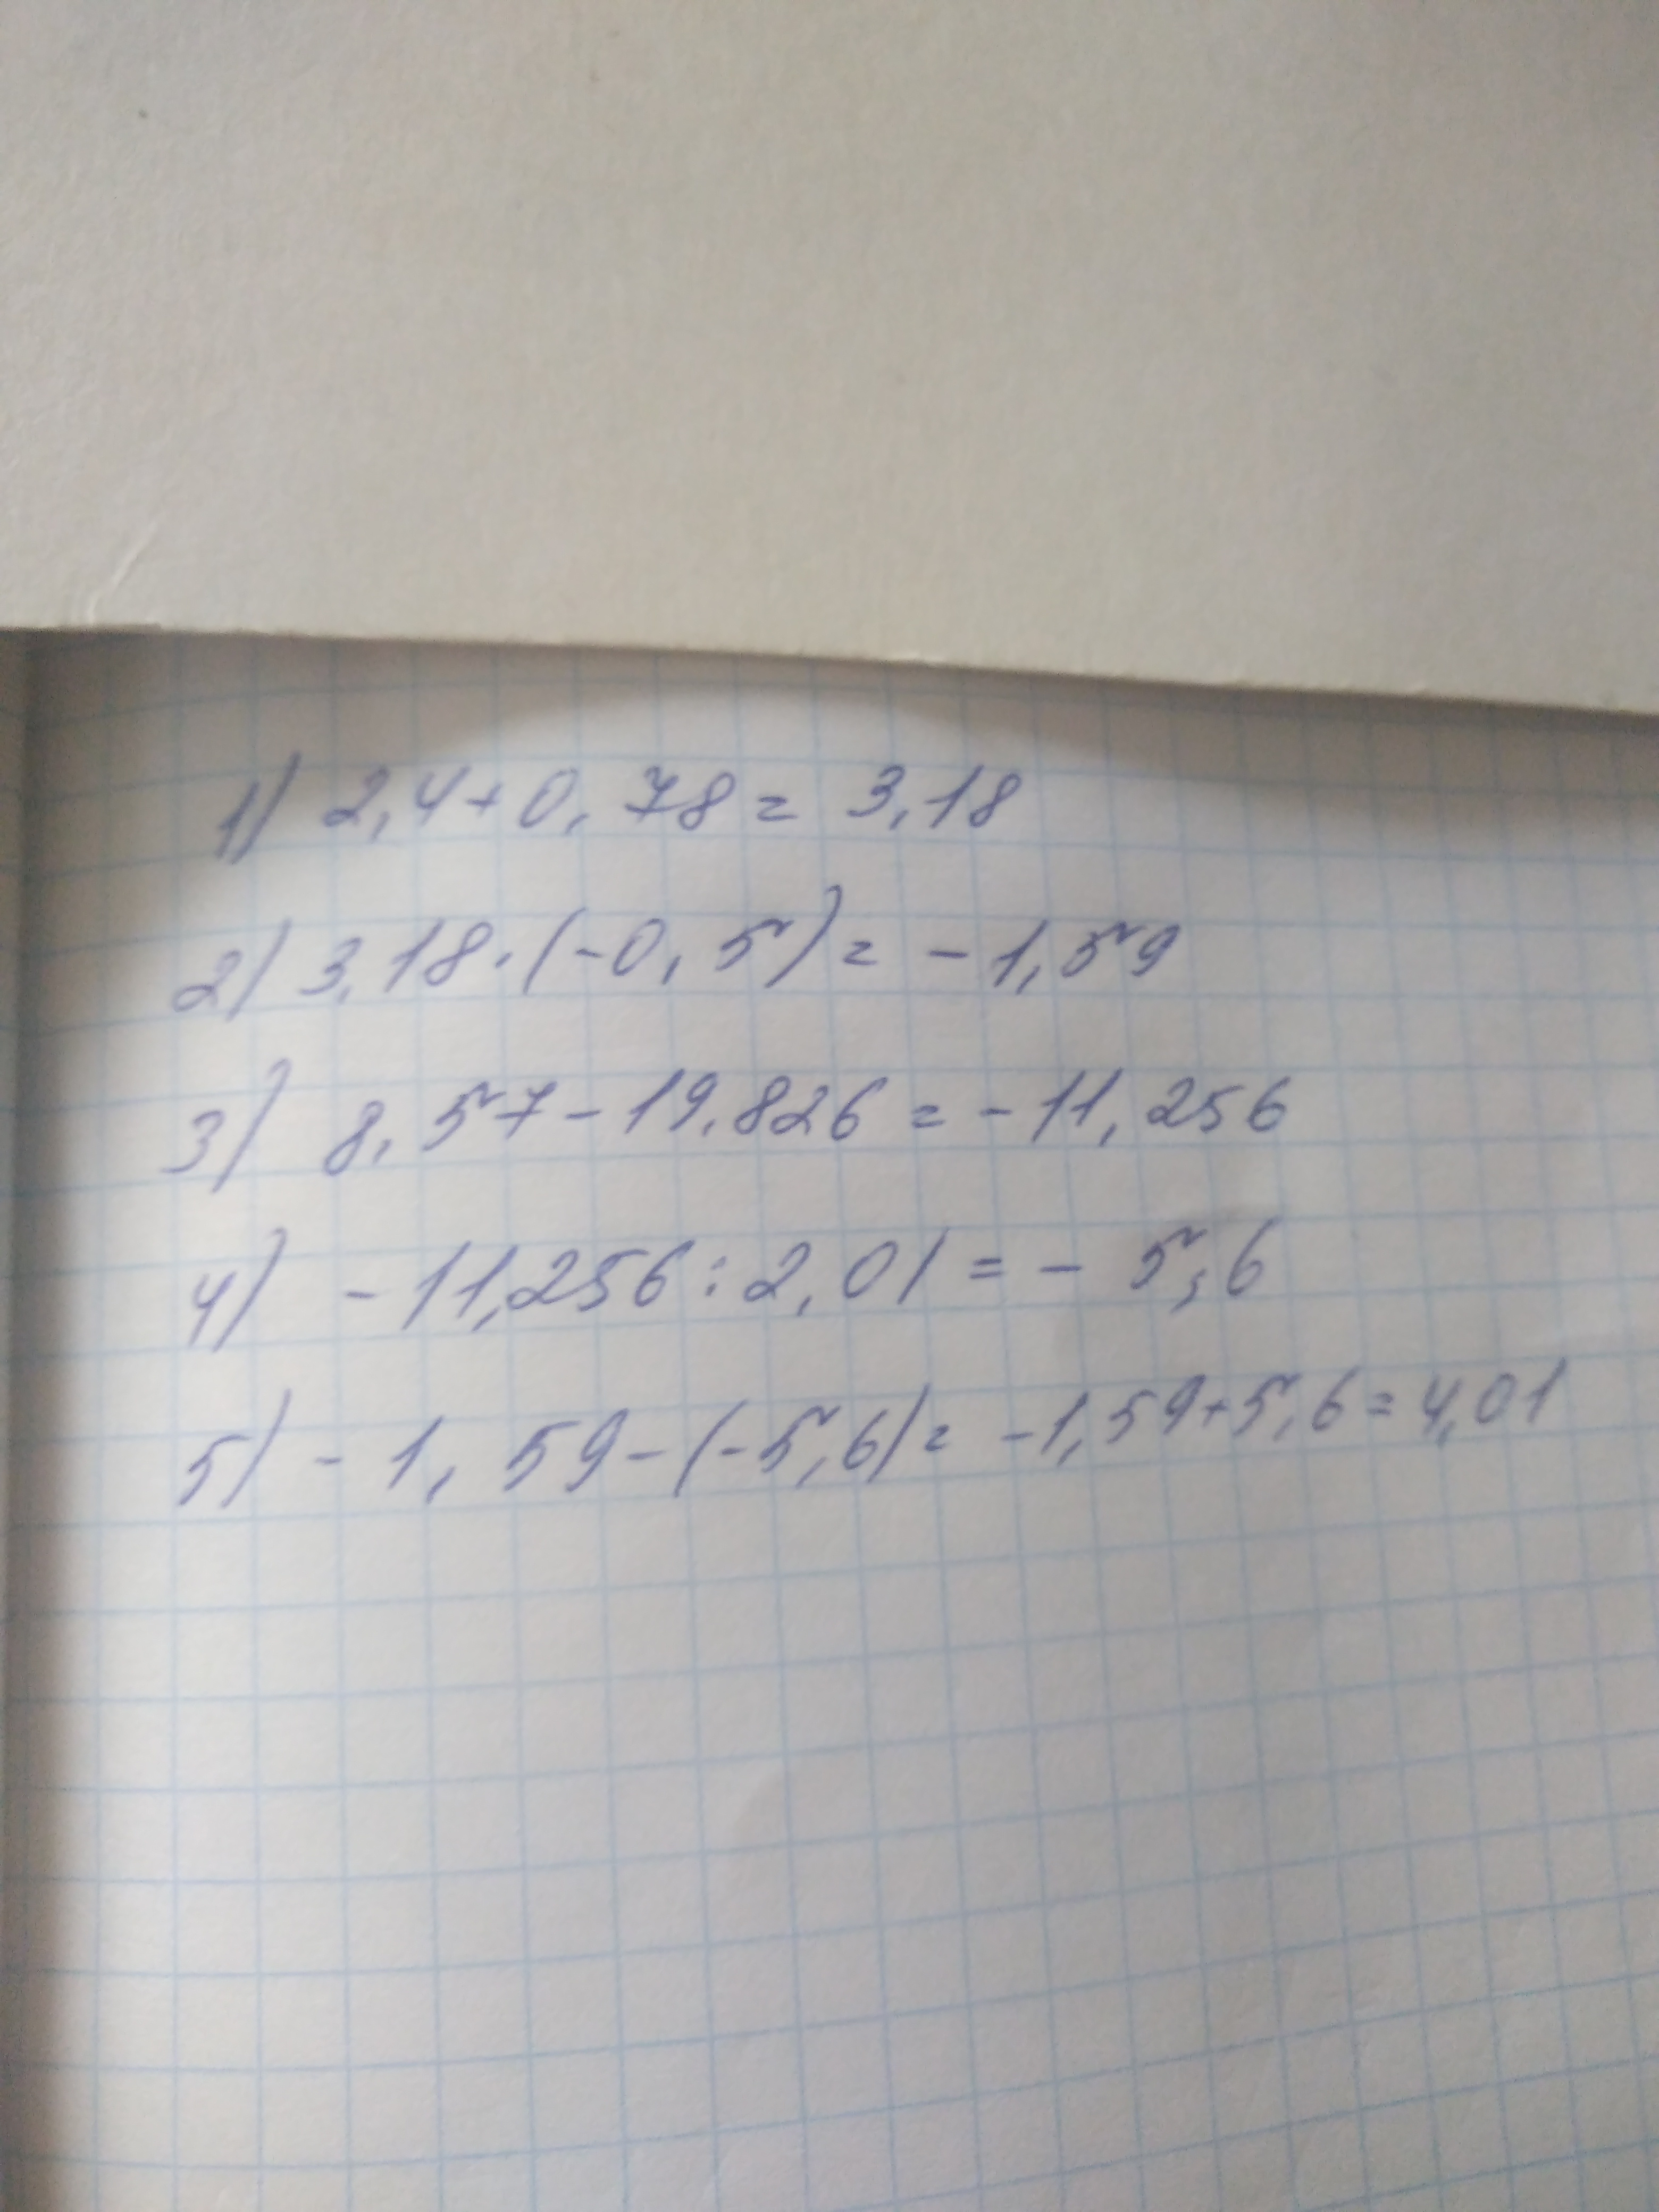 1) 2,4+0,78=3,18
2) 3,18·(-0,5)=-1,59
3) 8,57-19.826=-11,256
4) -11,256:2,01=-5,6
5) -1,59-(-5,6)=-1,59+5,6=4,01